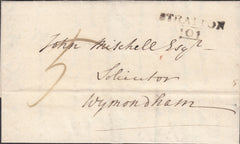 STRATTON
101
5
John Mitchell Esqr
Solicitor
Wymondham